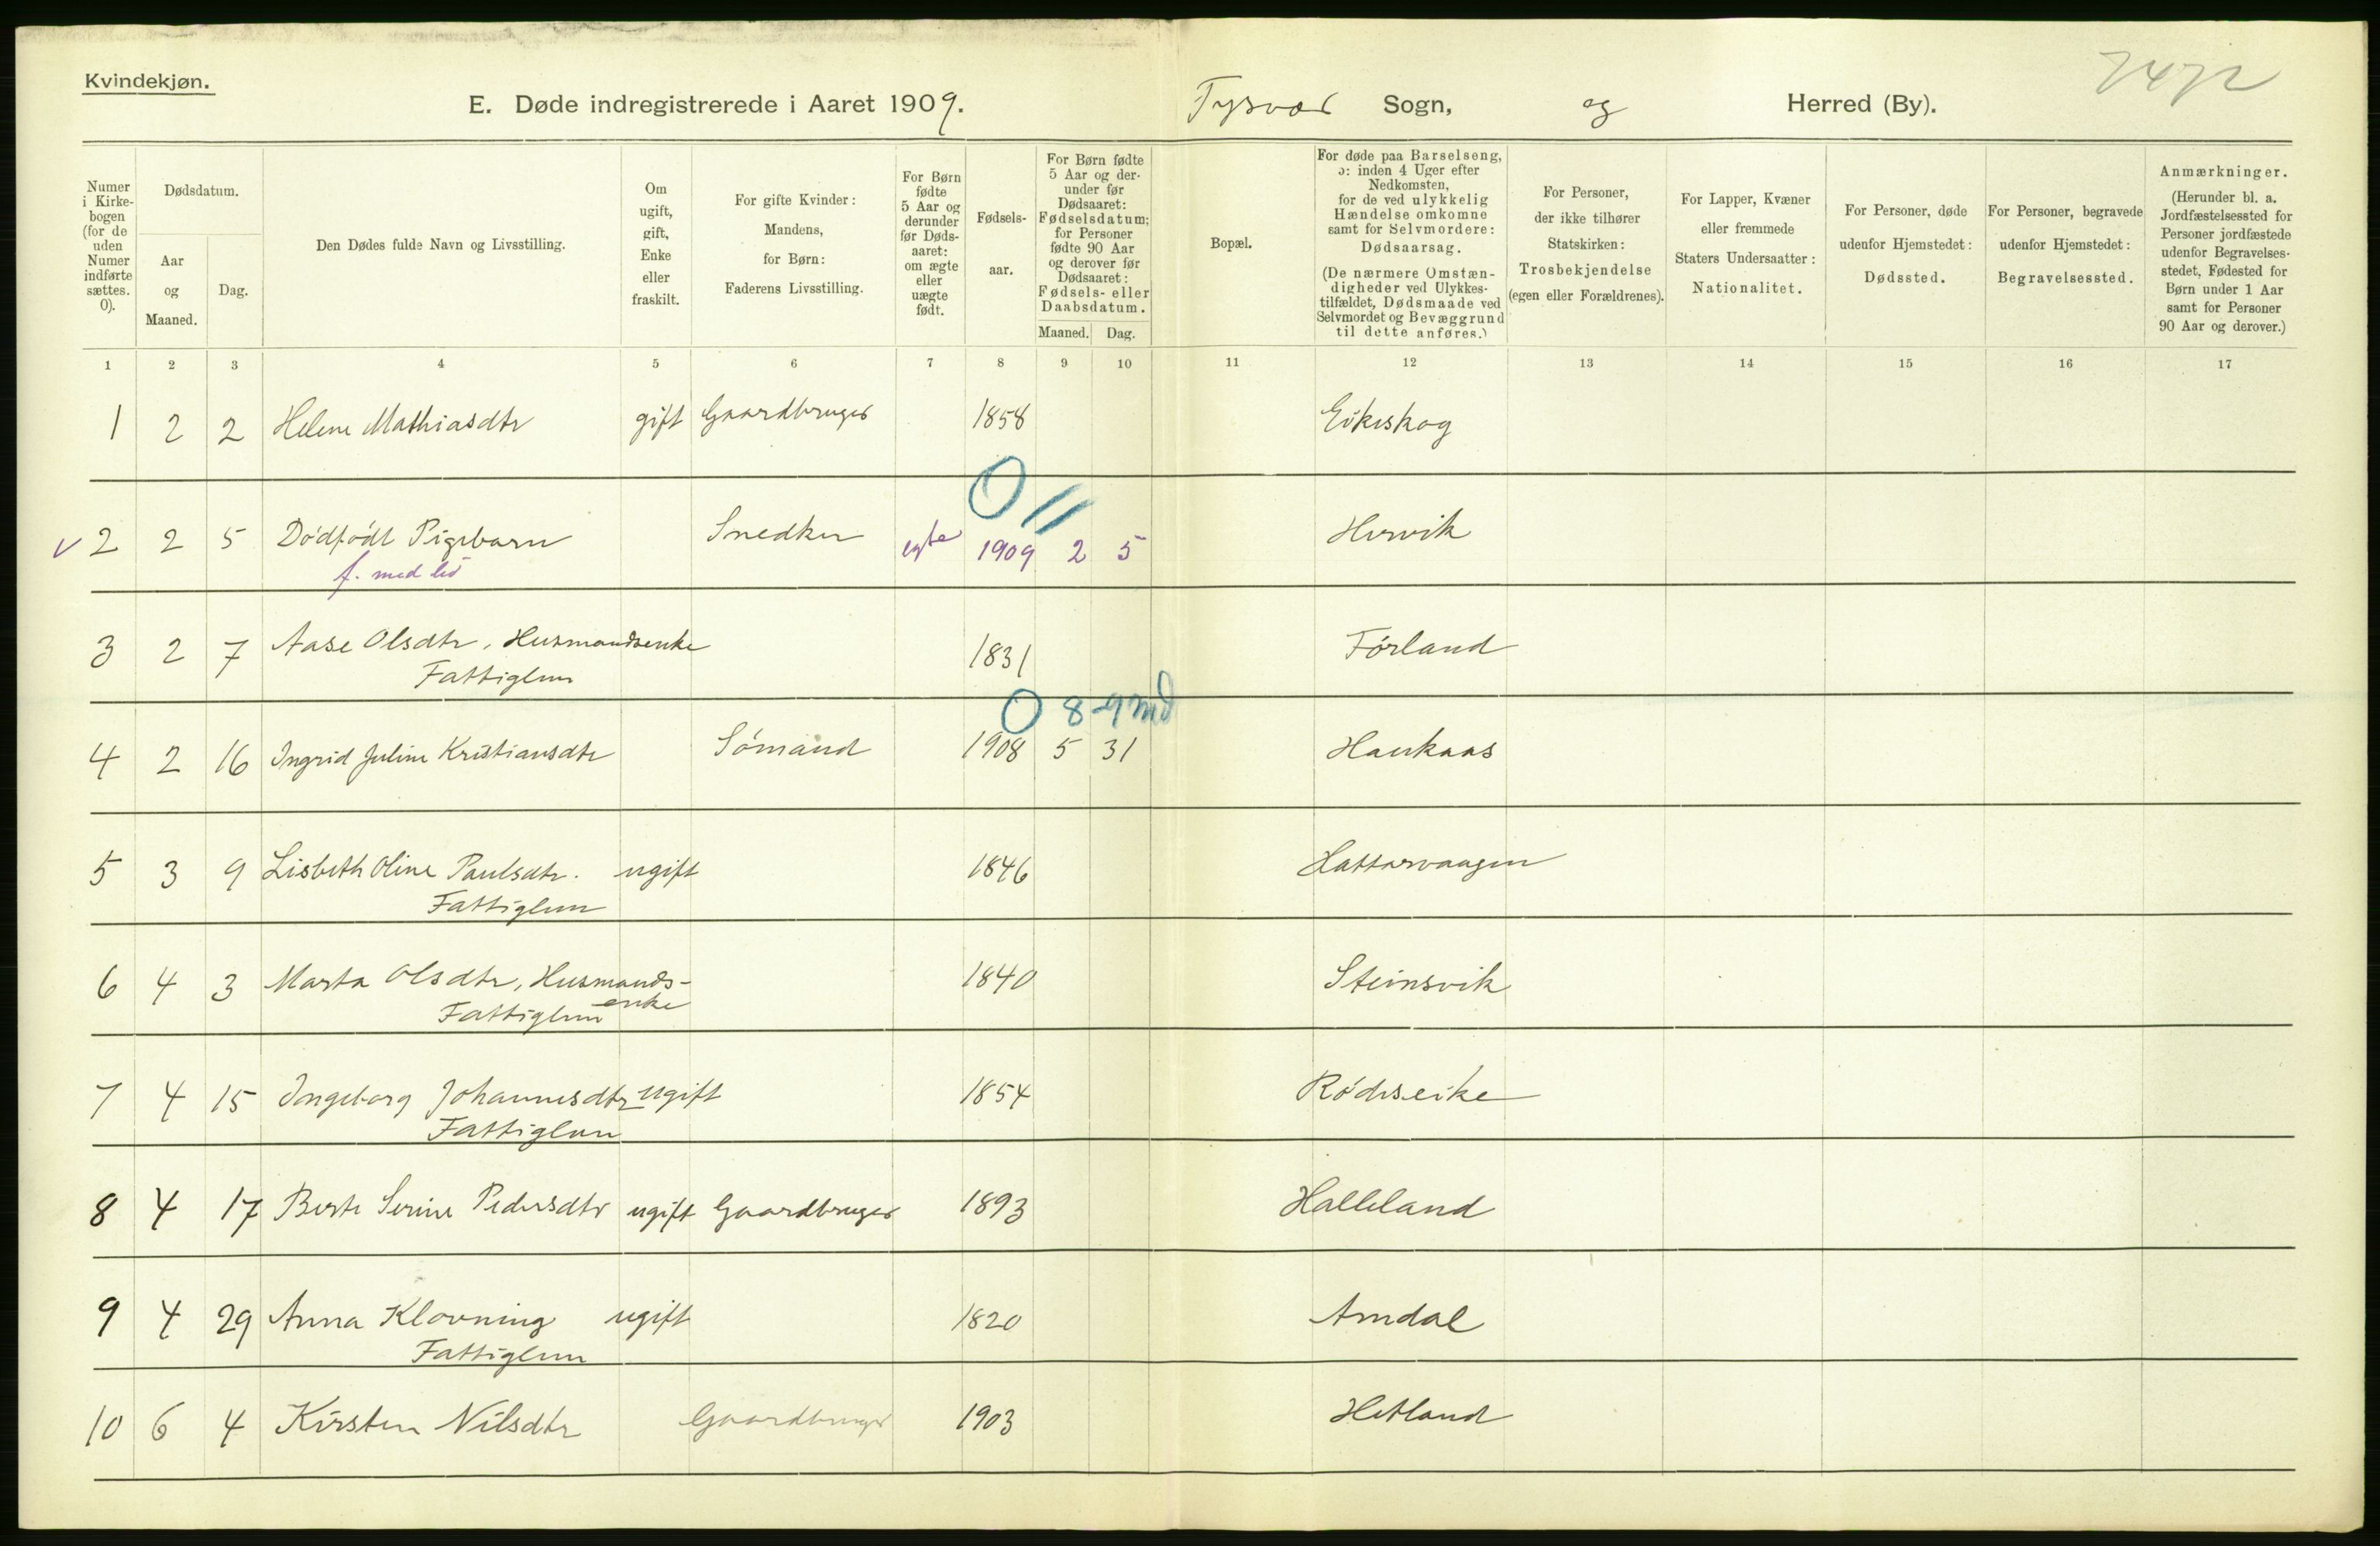 Kvindekjøn.
7472
E. Døde indregistrerede i Aaret 1909. Tysvær Sogn, og Herred (By).
Numer i Kirkebogen (for de uden Numer indførte sættes. 0).
Dødsdatum.
Aar og Maaned.
Dag.
Den Dødes fulde Navn og Livsstilling.
Om ugift, gift, Enke eller fraskilt.
For gifte Kvinder: Mandens, for Børn: Faderens Livsstilling.
For Børn fødte 5 Aar og derunder før Dødsaaret: om ægte eller uægte født.
Fødselsaar.
For Børn fødte 5 Aar og derunder før Dødsaaret: Fødselsdatum; for Personer fødte 90 Aar og derover før Dødsaaret: Fødsels- eller Daabsdatum.
Maaned. Dag.
Bopæl.
For døde paa Barselseng, ɔ: inden 4 Uger efter Nedkomsten, for de ved ulykkelig Hændelse omkomne samt for Selvmordere: Dødsaarsag.
(De nærmere Omstændigheder ved Ulykkestilfældet, Dødsmaade ved Selvmordet og Bevæggrund til dette anføres.)
For Personer, der ikke tilhører Statskirken: Trosbekjendelse (egen eller Forældrenes).
For Lapper, Kvæner eller fremmede Staters Undersaatter: Nationalitet.
For Personer, døde udenfor Hjemstedet: Dødssted.
For Personer, begravede udenfor Hjemstedet: Begravelsessted.
Anmærkninger.
(Herunder bl. a. Jordfæstelsessted for Personer jordfæstede udenfor Begravelsesstedet, Fødested for Børn under 1 Aar samt for Personer 90 Aar og derover.)
1 2 3 4 5 6 7 8 9 10 11 12 13 14 15 16 17
1 2 2 Helene Mathiasdtr gift Gaardbruger 1858 Eikeskog
0 11
v 2 2 5 Dødfødt Pigebarn Snedker egte 1909 2 5 Hervik
f. med liv
3 2 7 Aase Olsdtr, Husmandsenke 1831 Førland
Fattiglem
0 8-9 md
4 2 16 Ingrid Juline Kristiansdtr Sømand 1908 5 31 Haukaas
5 3 9 Lisbeth Oline Paulsdtr. ugift 1846 Hattarvaagen
Fattiglem
6 4 3 Marta Olsdtr, Husmands- 1840 Steinsvik
Fattiglem enke
7 4 15 Ingeborg Johannesdtr ugift 1854 Rødseike
Fattiglem
8 4 17 Berte Serine Pedersdtr ugift Gaardbruger 1893 Halleland
9 4 29 Anna Klovning ugift 1820 Amdal
Fattiglem
10 6 4 Kirsten Nilsdtr Gaardbruger 1903 Hetland